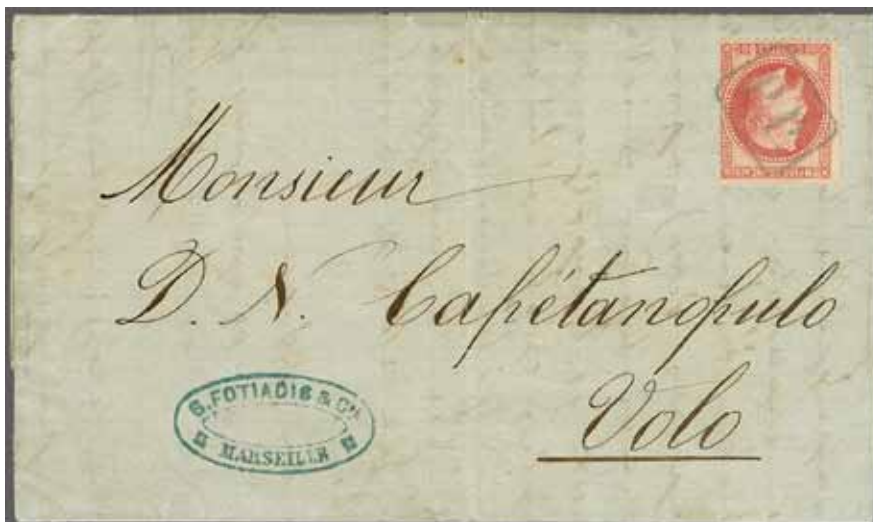 Monsieur
D. N. Capétanopulo
Volo
S. FOTIADIS & Cie
MARSEILLE